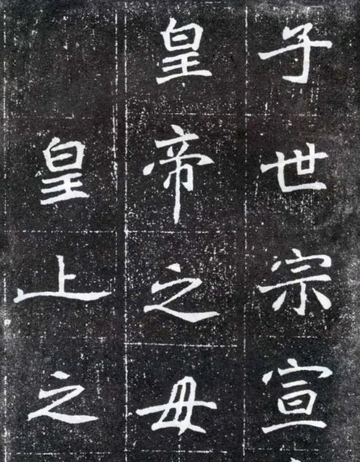 子世宗宣
皇帝之毋
皇上之